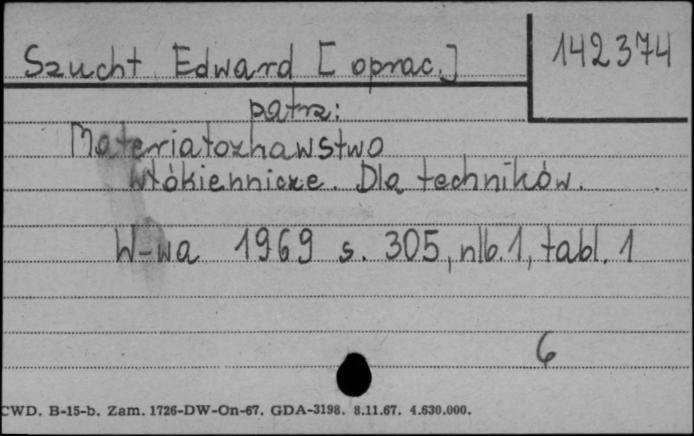 Szucht Edward [oprac.]
142374
patrz:
Materiałoznawstwo
włókiennicze. Dla techników.
W-wa 1969 s. 305, nlb. 1, tabl. 1
6
CWD. B-15-b. Zam. 1726-DW-On-67. GDA-3198. 8.11.67. 4.630.000.